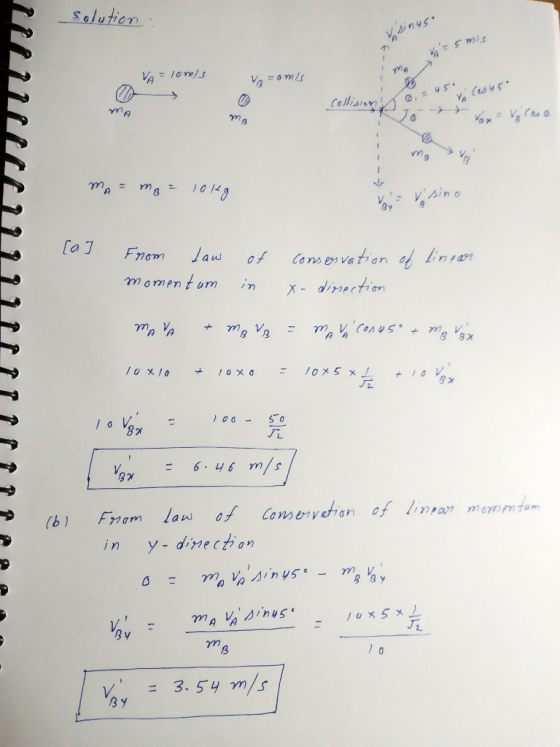 Solution :
V_A = 10 m/s
m_A
V_B = 0 m/s
m_B
V_A' sin45°
V_A' = 5 m/s
m_A
θ_1 = 45°
V_A' cos45°
Collision
θ
V_BX' = V_B' cos θ
m_B
V_B'
V_BY' = V_B' sin θ
m_A = m_B = 10 kg
[a] From law of conservation of linear
momentum in X-direction
m_A V_A + m_B V_B = m_A V_A' cos45° + m_B V_BX'
10×10 + 10×0 = 10×5×1/√2 + 10 V_BX'
10 V_BX' = 100 - 50/√2
V_BX' = 6.46 m/s
(b) From law of conservation of linear momentum
in Y-direction
0 = m_A V_A' sin45° - m_B V_BY'
V_BY' = m_A V_A' sin45° / m_B = 10×5×1/√2 / 10
V_BY' = 3.54 m/s